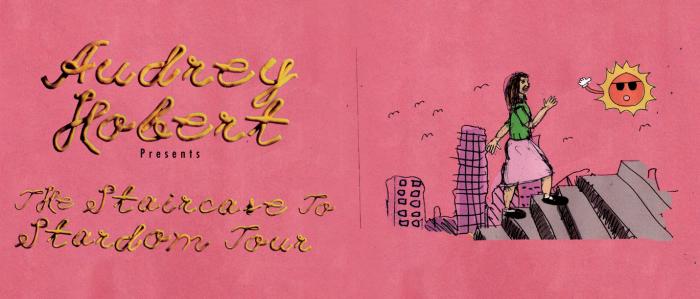 Audrey
Hobert
Presents
The Staircase To
Stardom Tour